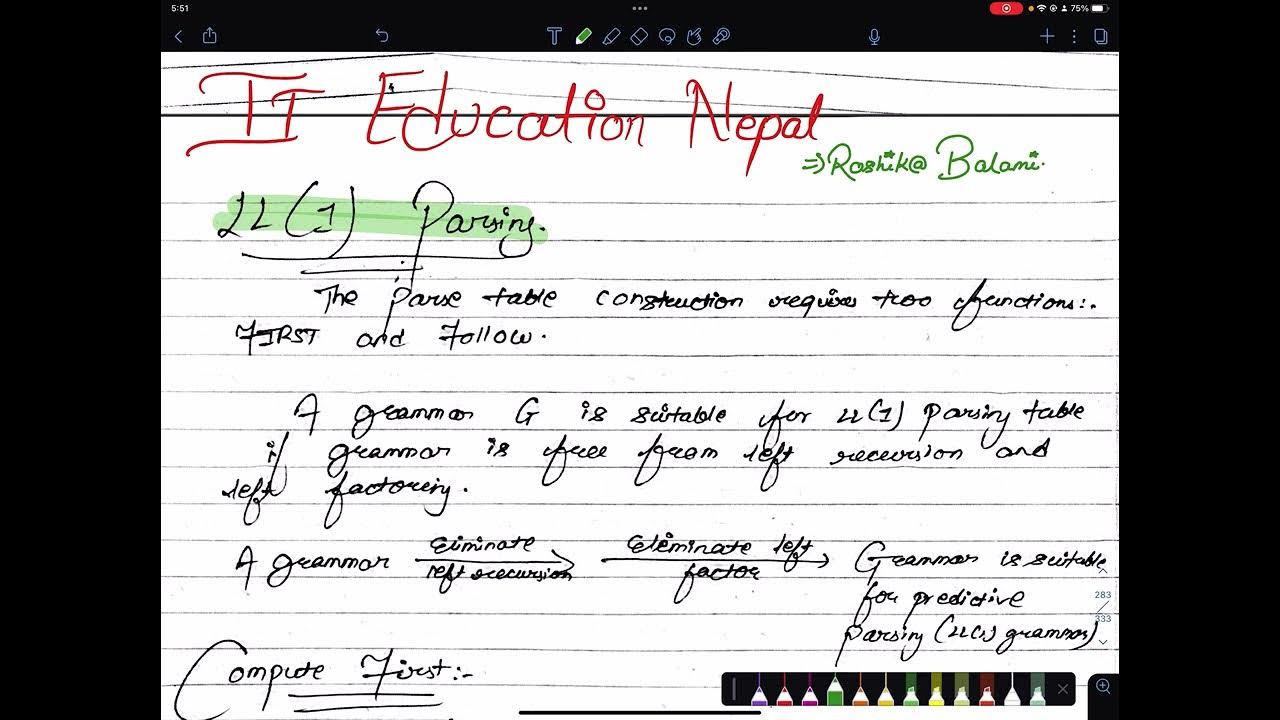 5:51
75%
IT Education Nepal
=> Roshik@ Balami.
LL(1) Parsing.
The parse table construction requires two functions:.
FIRST and Follow.
A grammar G is suitable for LL(1) parsing table
if grammar is free from left recursion and
left factoring.
A grammar Eliminate left recursion → Eliminate left factor → Grammar is suitable
for predictive
parsing (LL(1) grammar)
283
333
Compute First:-